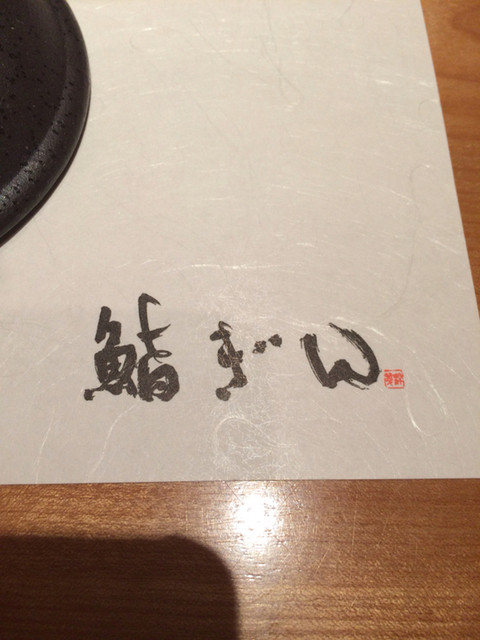 鮨ぎん